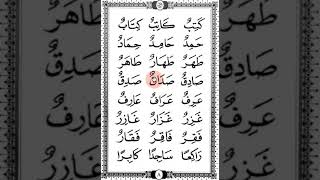 كِتَابٌ كَاتِبٌ كَتِبٌ
حِمَادٌ حَامِدٌ حَمِدٌ
طَاهَرٌ طَهَارٌ طَهَرٌ
صَدِقٌ صَدَاقٌ صَادِقٌ
عَارِفٌ عَرَافٌ عَرِفٌ
غَازِرٌ غَزَارٌ غَزِرٌ
فَقَارٌ فَاقِرٌ فَقِرٌ
كَابِرًا سَاجِدًا رَاكِعًا
٨